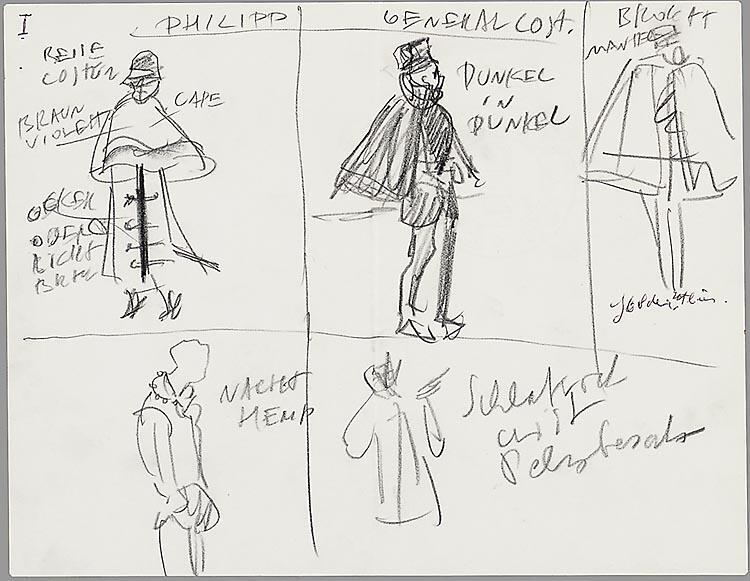 I
PHILIPP
GENERAL COST.
BROKAT
MANTEL
REISE
COSTÜM
BRAUN
VIOLETT
CAPE
DUNKEL
IN
DUNKEL
OCKER
ODER
LICHT
BRAUN
NACHT
HEMD
Schlafrock
mit
Pelzbesatz